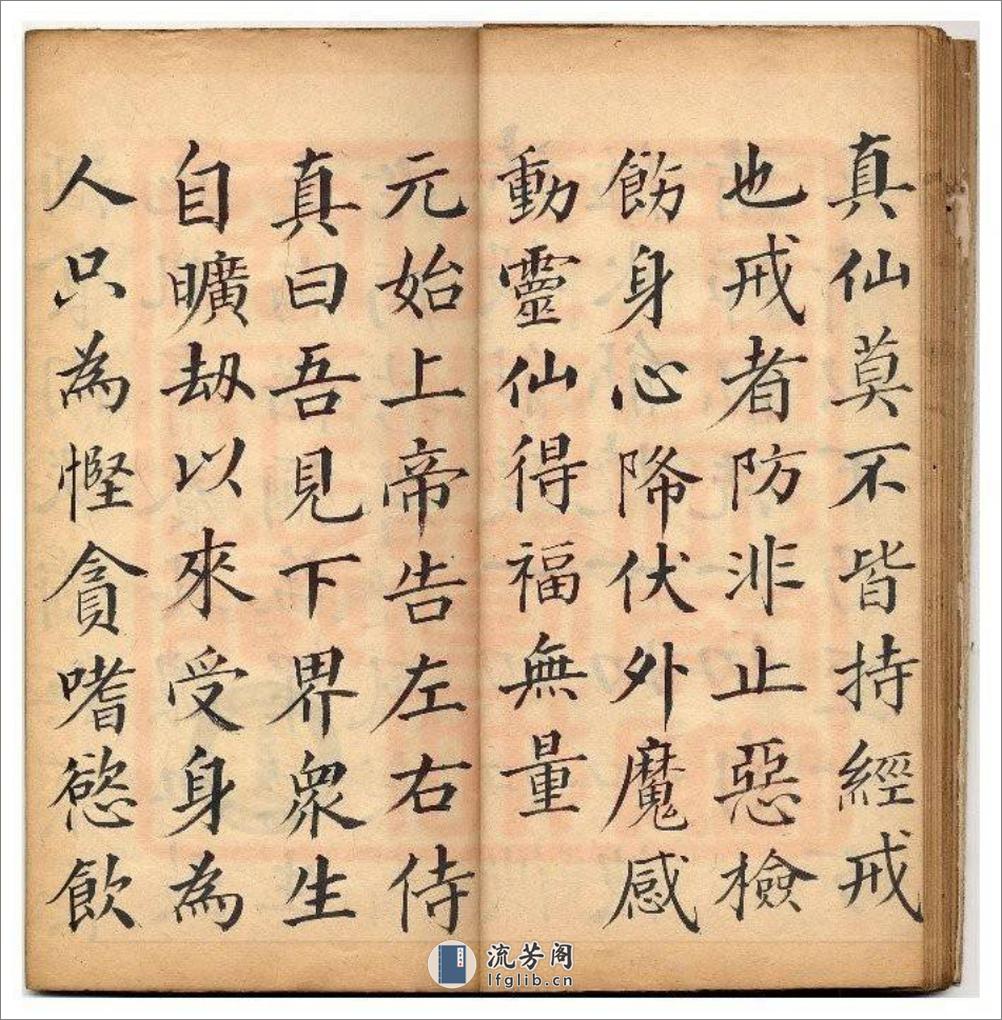 真仙莫不皆持經戒
也戒者防非止惡檢
飭身心降伏外魔感
動靈仙得福無量
元始上帝告左右侍
真曰吾見下界眾生
自曠劫以來受身為
人只為慳貪嗜慾飲
流芳阁
lfglib.cn